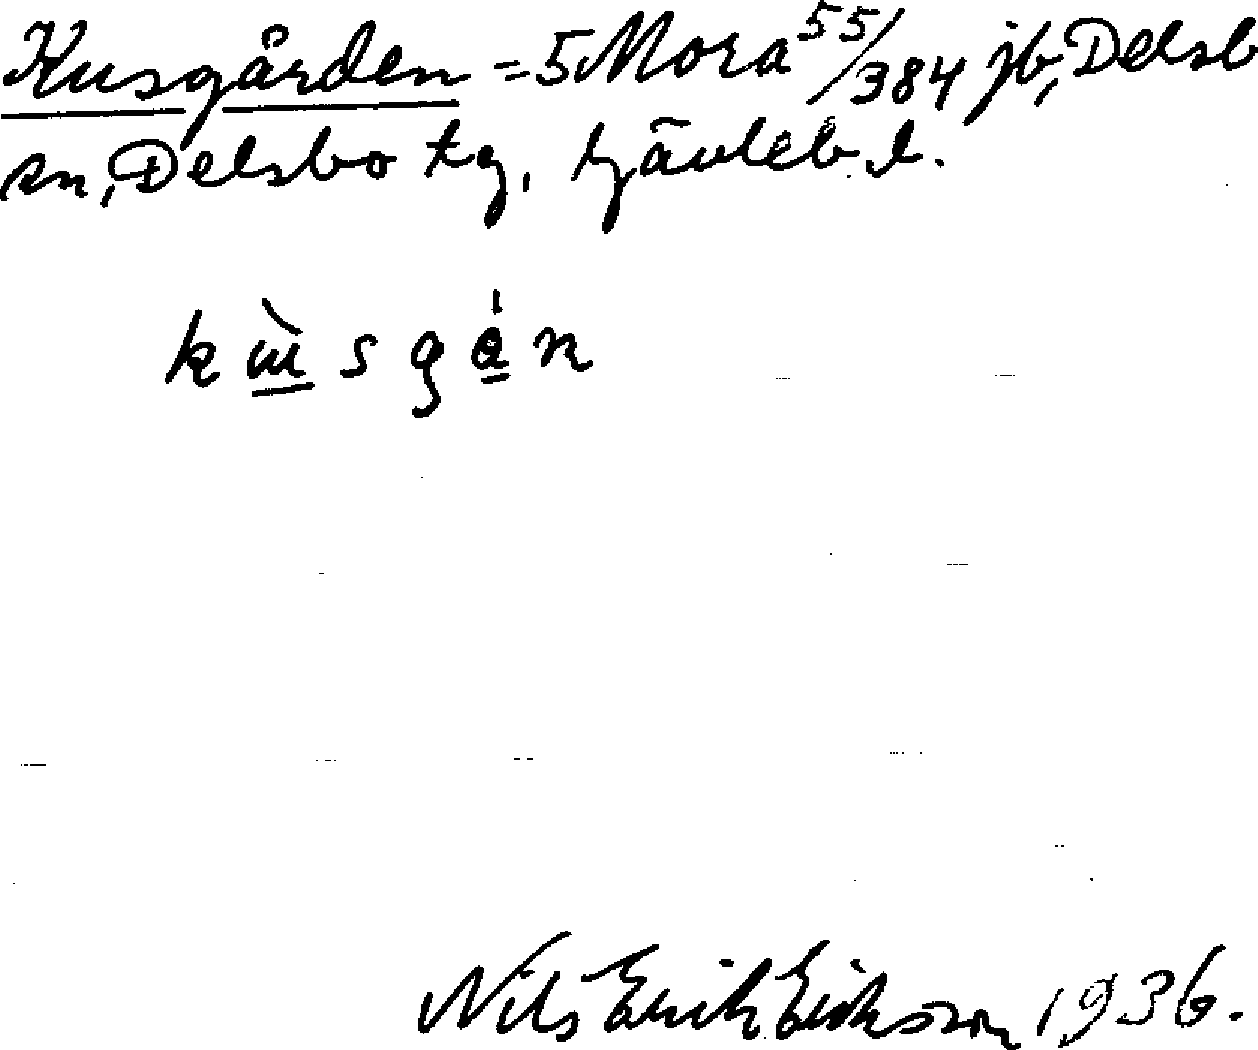 Kusgården = 5 Mora 55/384 jb, Delsb
sn, Delsbo tg, Gävleb. l.
Nils Erik Eriksson 1936.